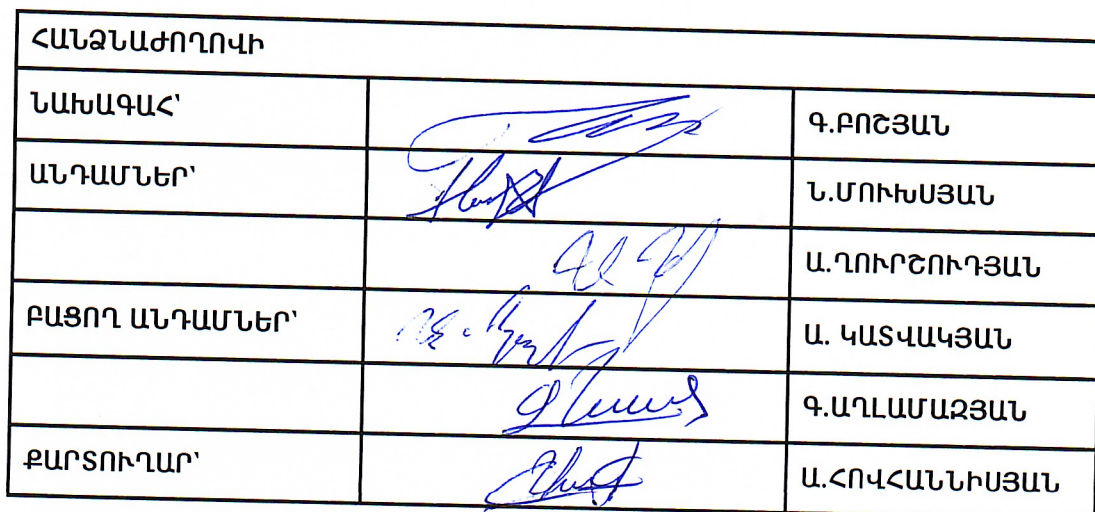 ՀԱՆՁՆԱԺՈՂՈՎԻ
ՆԱԽԱԳԱՀ՝ Գ.ԲՈՇՅԱՆ
ԱՆԴԱՄՆԵՐ՝ Ն.ՄՈՒԽՍՅԱՆ
Ա.ՂՈՒՐՇՈՒԴՅԱՆ
ԲԱՑՈՂ ԱՆԴԱՄՆԵՐ՝ Ա. ԿԱՏՎԱԿՅԱՆ
Գ.ԱՂԼԱՄԱԶՅԱՆ
ՔԱՐՏՈՒՂԱՐ՝ Ա.ՀՈՎՀԱՆՆԻՍՅԱՆ